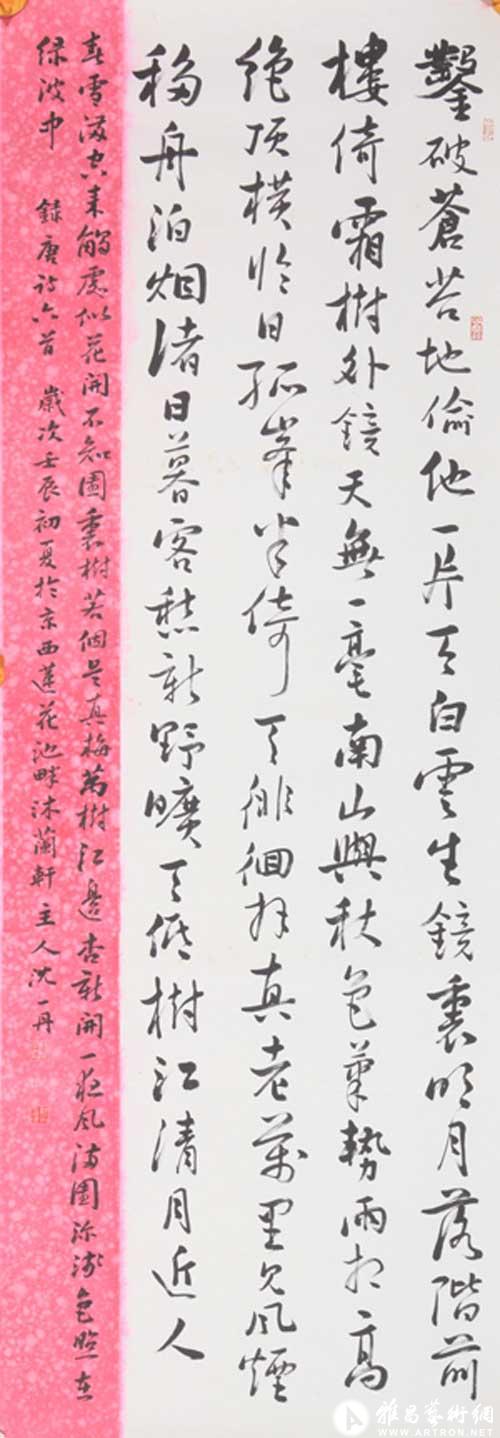 鑿破蒼苔地偷他一片天白雲生鏡裏明月落階前
樓倚霜樹外鏡天無一毫南山與秋色氣勢兩相高
絶頂橫臨日孤峯半倚天徘徊拜真老萬里見風煙
移舟泊烟渚日暮客愁新野曠天低樹江清月近人
春雪滿空来觸處似花開不知園裏樹若個是真梅萬樹江邊杏新開一夜風滿園深淺色照在
绿波中 録唐詩六首 歲次壬辰初夏於京西蓮花池畔沐蘭軒主人沈一丹
雅昌藝術網
WWW.ARTRON.NET